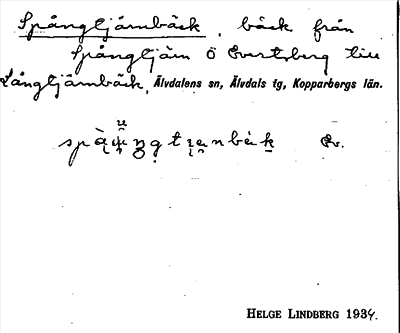 Spångtjärnbäck, bäck från
Spångtjärn Ö Evertsberg till
Långtjärnbäck, Älvdalens sn, Älvdals tg, Kopparbergs län.
Ev.
HELGE LINDBERG 1934.